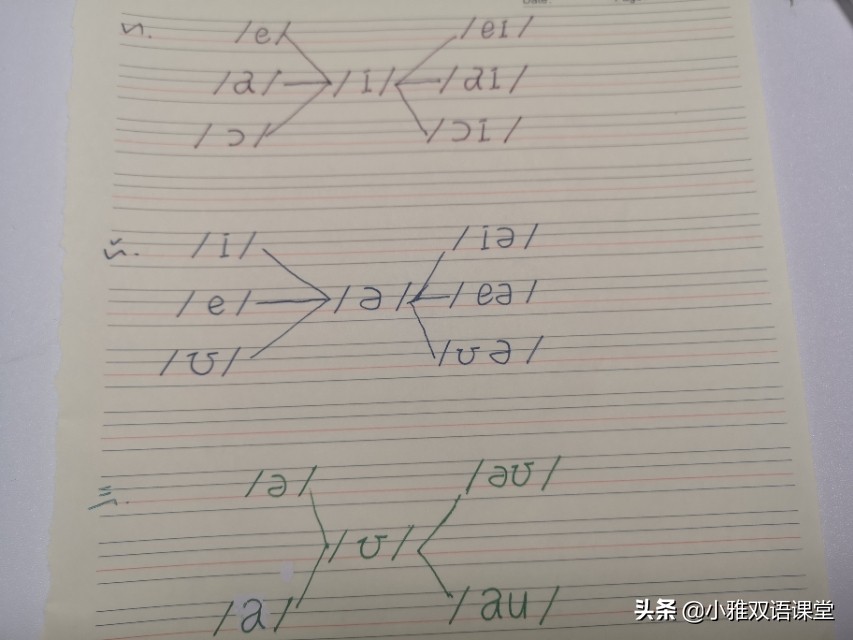 /e/ /eɪ/
/a/ /ɪ/ /aɪ/
/ɔ/ /ɔɪ/
/ɪ/ /ɪə/
/e/ /ə/ /eə/
/ʊ/ /ʊə/
三. /ə/ /əʊ/
/ʊ/
/a/ /au/
头条 @小雅双语课堂